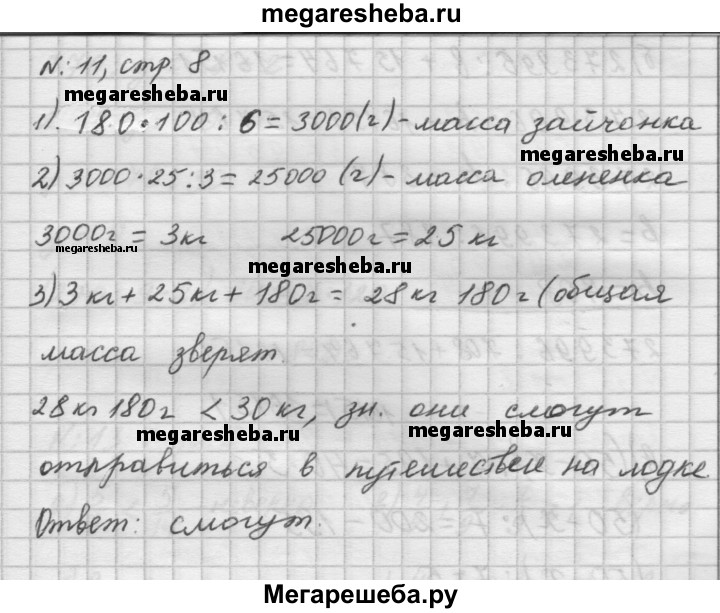 megaresheba.ru
№: 11, стр 8
megaresheba.ru
1). 180·100:6=3000(г)-масса зайчонка
megaresheba.ru
2) 3000·25:3=25000 (г)- масса олененка
3000г = 3кг 25000г=25 кг
megaresheba.ru
megaresheba.ru
3) 3 кг+ 25кг+ 180г= 28кг 180г (общая
масса зверят.
28кг 180г < 30кг, зн. они смогут
megaresheba.ru megaresheba.ru
отправиться в путешествен на лодке.
Ответ: смогут.
Мегарешеба.ру